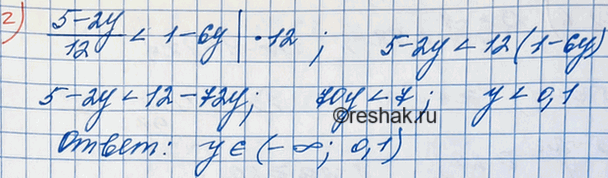 2) (5-2y)/12 < 1-6y | ·12 ; 5-2y < 12(1-6y)
5-2y < 12-72y; 70y < 7; y < 0,1
©reshak.ru
Ответ: y ∈ (-∞; 0,1)